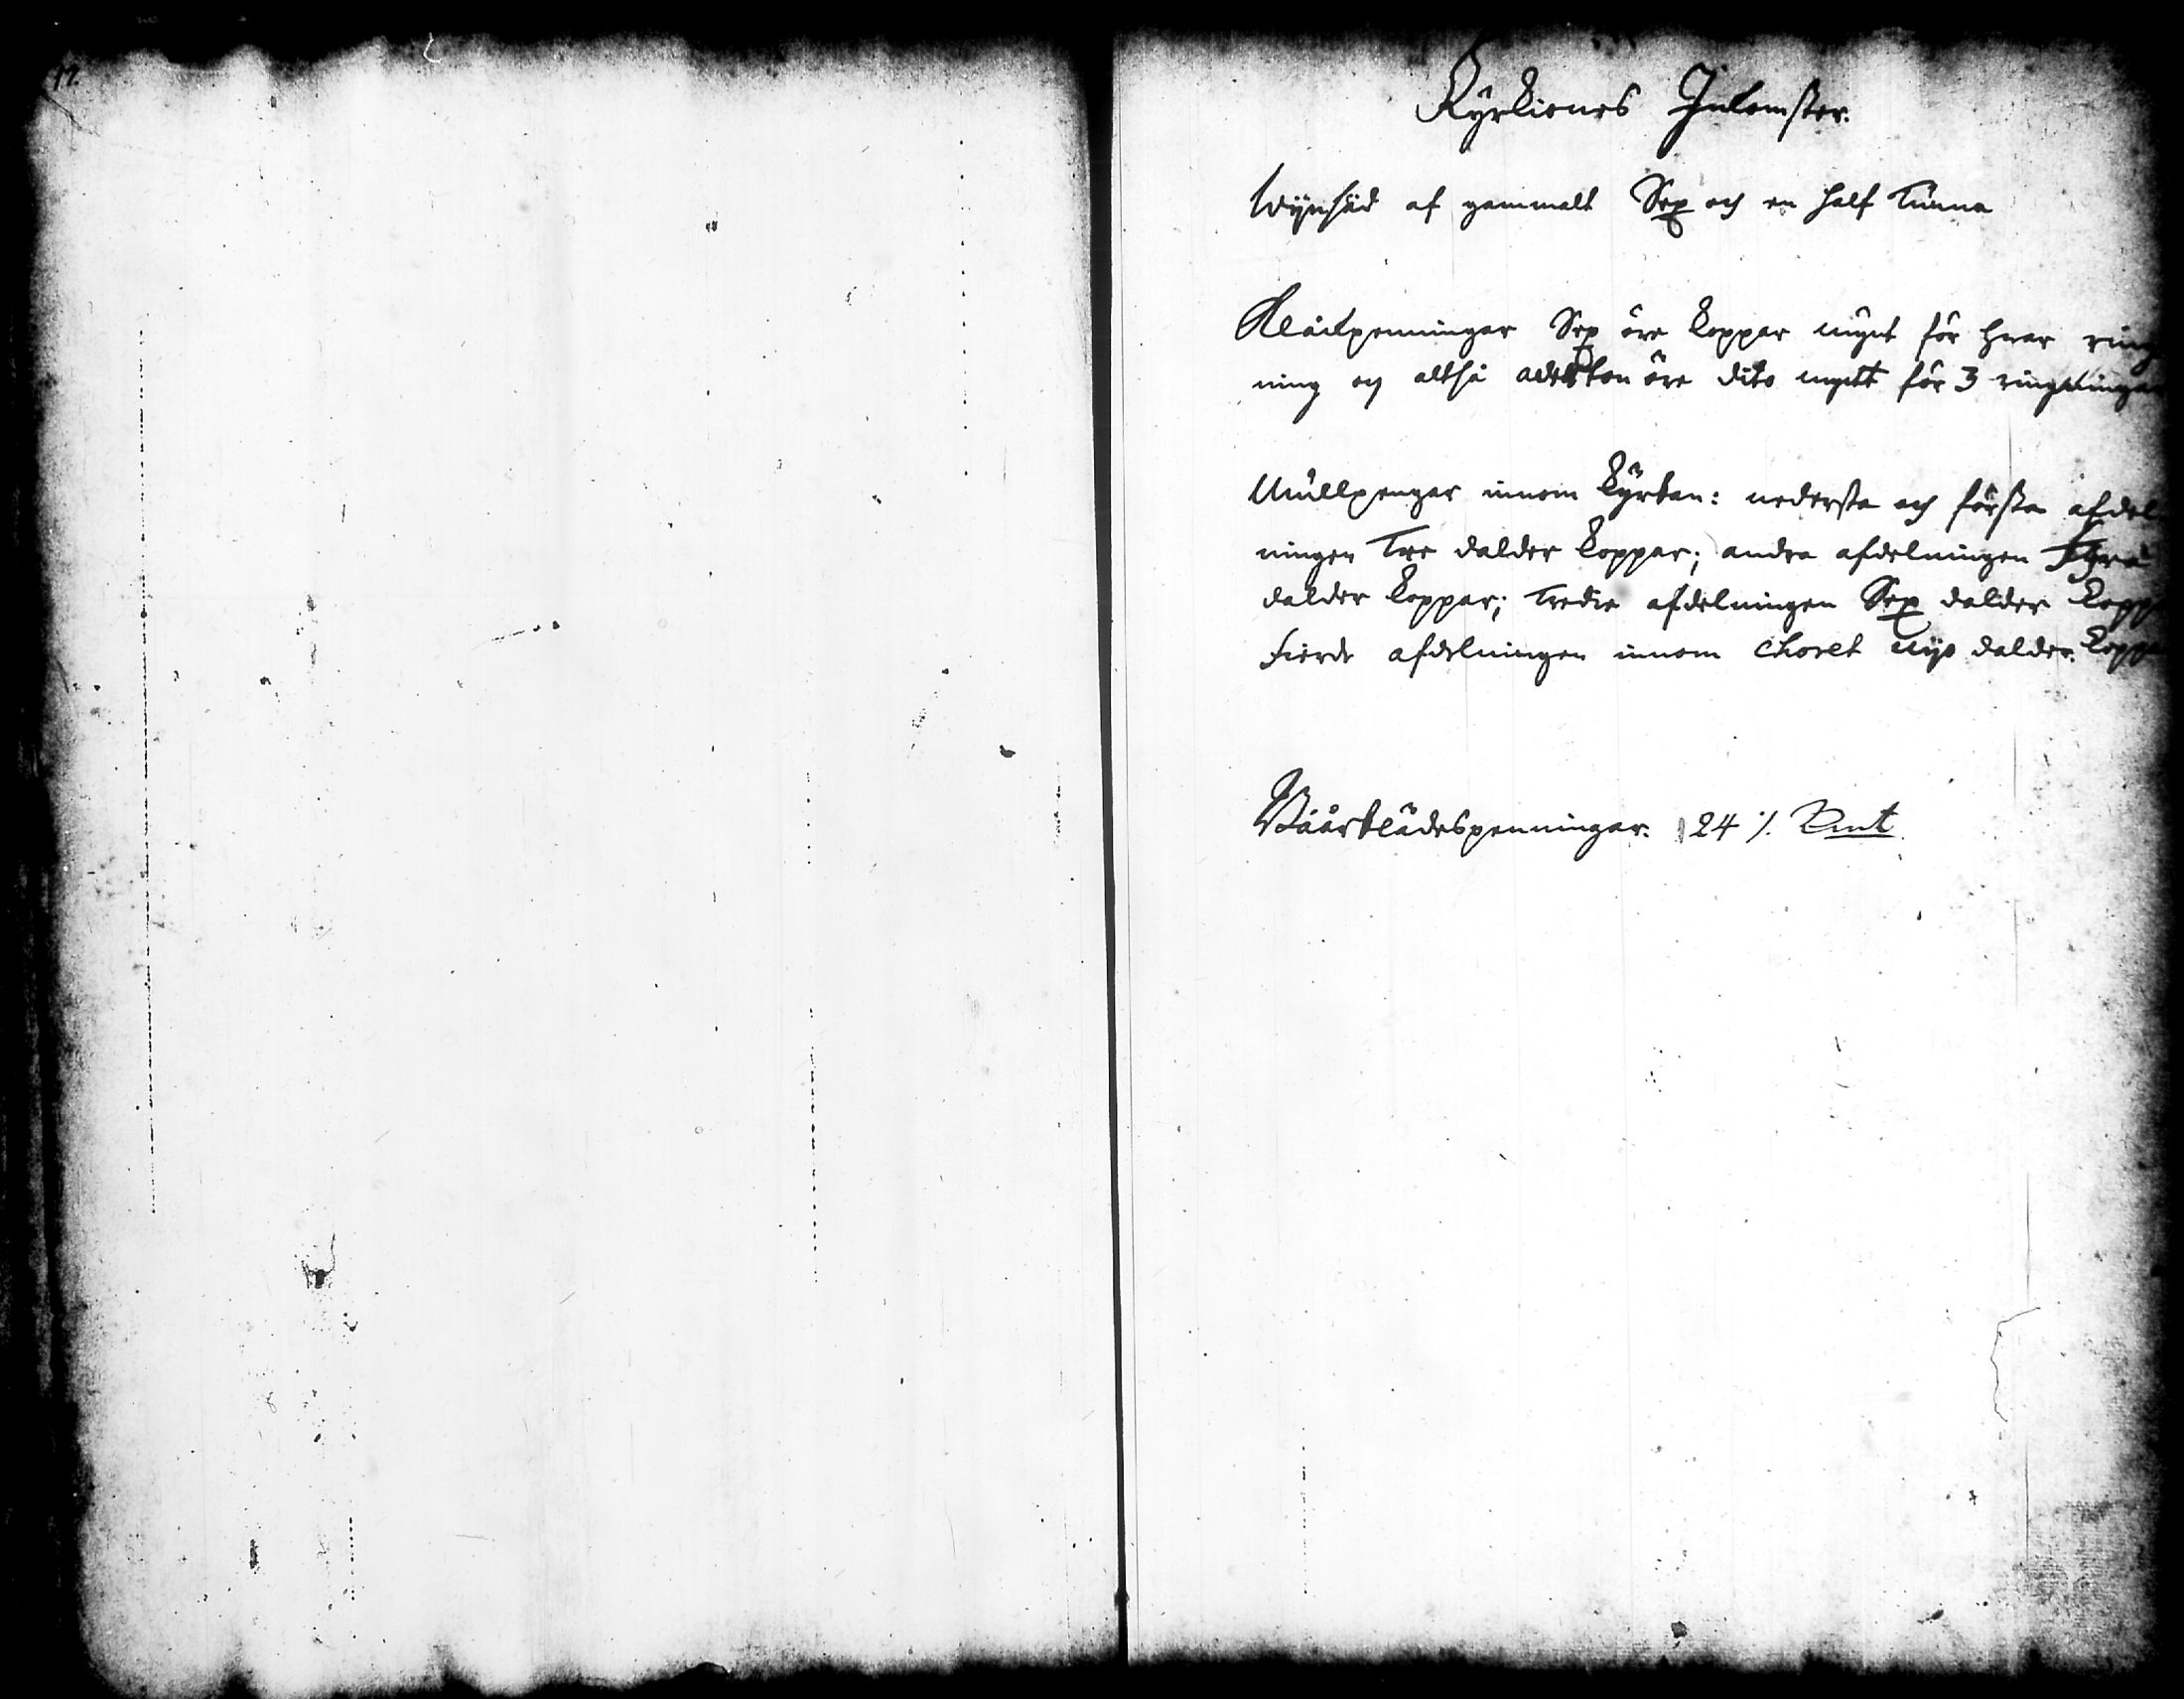 17.
Kyrkiones Inkomster.
Wijnsäd af gammalt Sex och en half Tunna
Klåckpenningar Sex öre koppar mynt för hvar ring
ning och altså aderton öre dito mynt för 3 ringningar
Mullpengar innom kyrkan: nedersta och första afdel
ningen Tre daler koppar; andra afdelningen Fyra
daler koppar; Tredie afdelningen Sex daler kopp
Fierde afdelningen innom Choret daler kopp
Båårklädespenningar. 24 Kmt